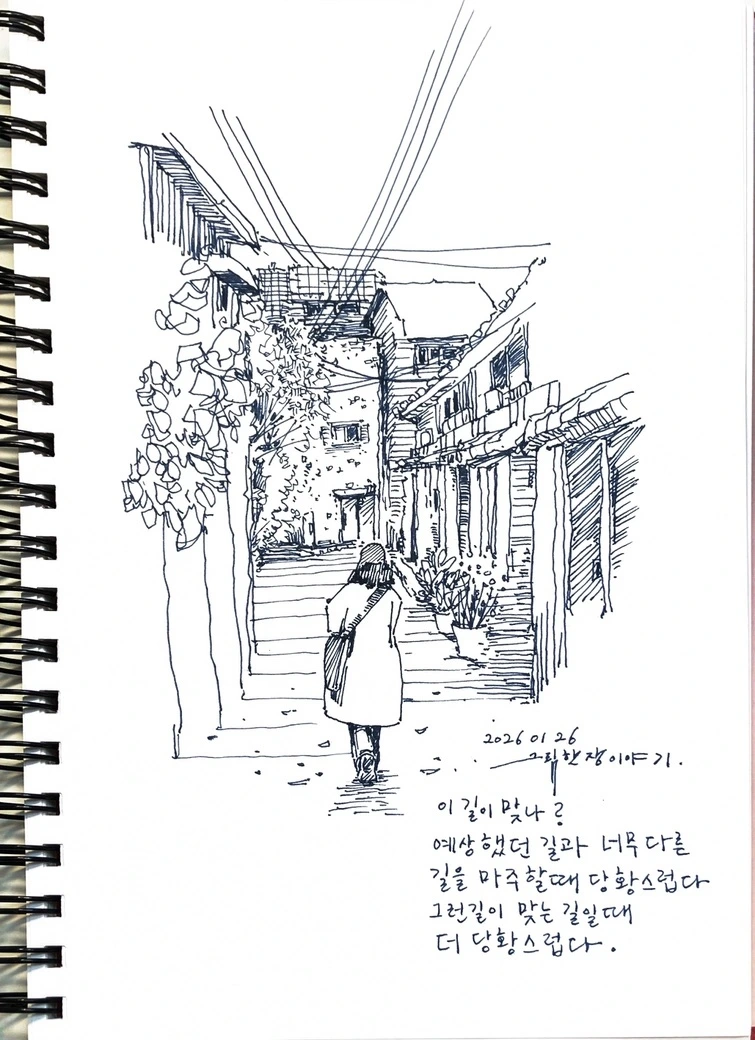 2026 01 26
그림한장이야기.
이 길이 맞나?
예상했던 길과 너무 다른
길을 마주할때 당황스럽다
그런길이 맞는 길일때
더 당황스럽다.